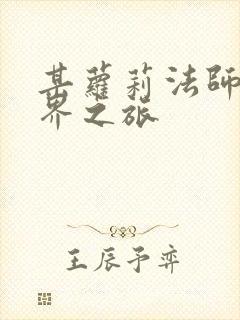 某蘿莉法師
界之旅
王辰予弈